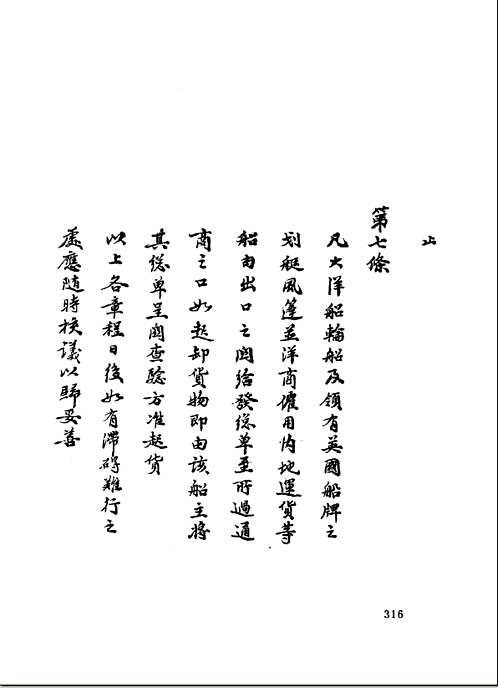 止
第七條
凡大洋船輪船及領有英國船牌之
划艇風篷並洋商僱用內地運貨等
船由出口之關給發總单至所過通
商之口如起卸貨物即由該船主將
其總单呈關查驗方准起貨
以上各章程日後如有滯碍難行之
處應隨時挨議以歸妥善
316